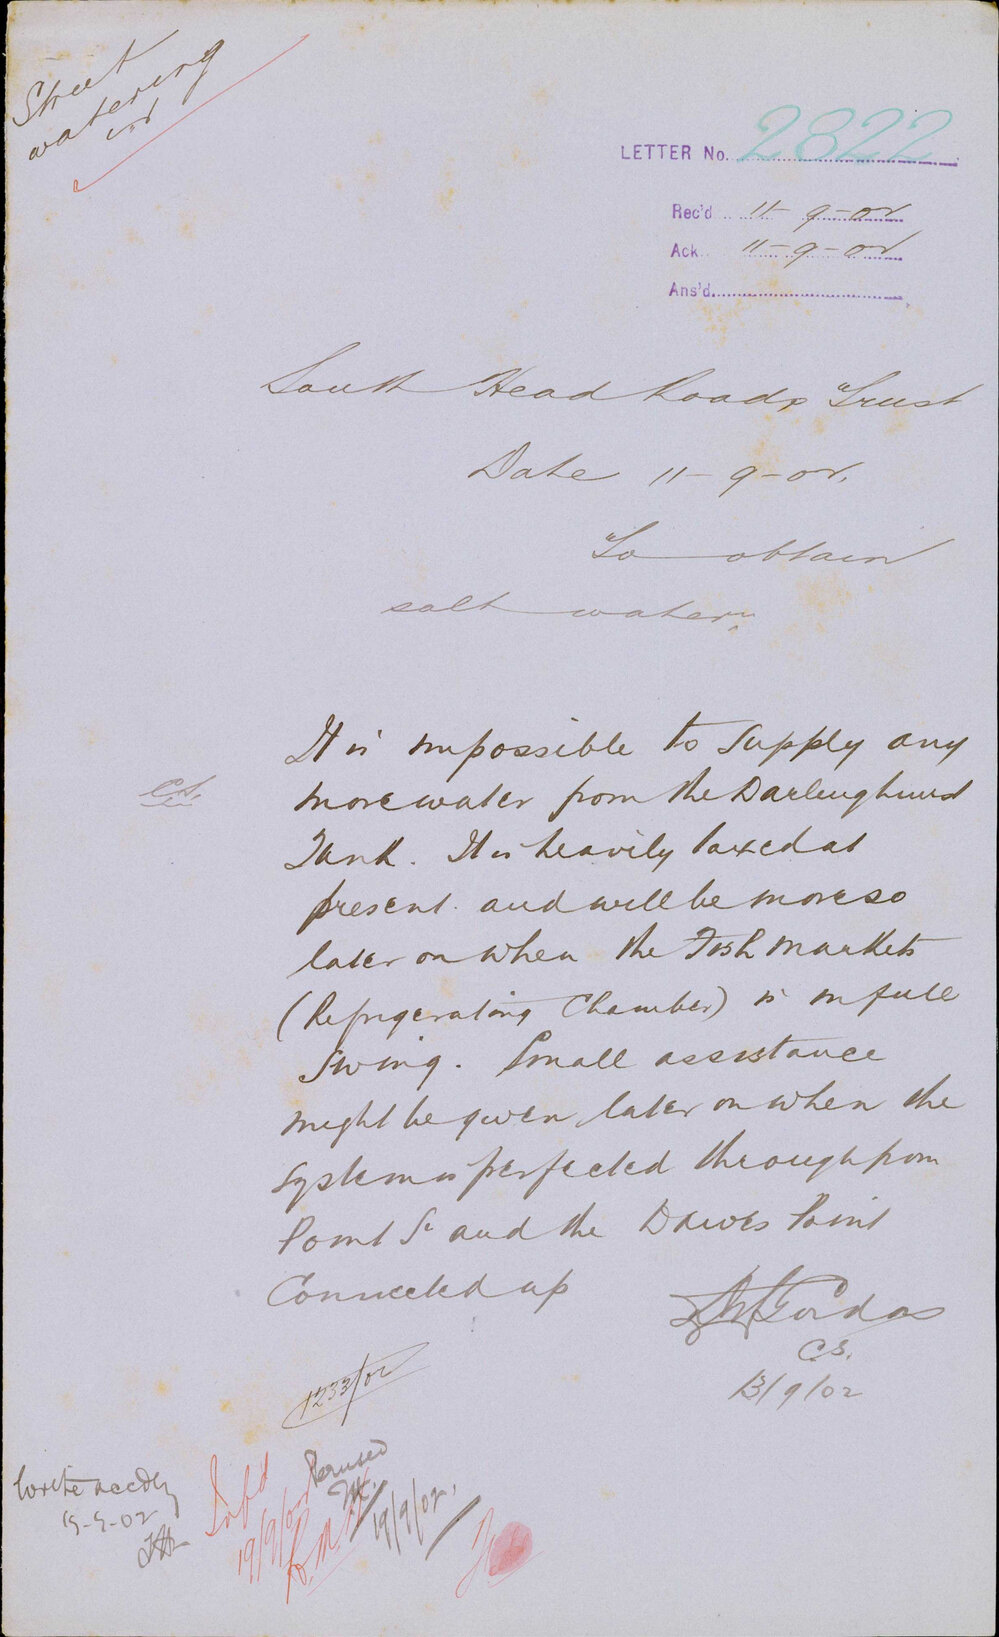 Street
watering
LETTER No. 2822
Rec'd 11-9-02
Ack. 11-9-02
Ans'd.
South Head Roads Trust
Date 11-9-02.
To obtain
salt water.
C.S.
It is impossible to supply any
more water from the Darlinghurst
Tank. It is heavily taxed at
present and will be more so
later on when the Fish Markets
(Refrigerating Chamber) is in full
swing. Small assistance
might be given later on when the
system is perfected through from
Point St and the Dawes Point
Connected up
C.S.
13/9/02
1233/02
Write accdly
15-9-02
Inf'd
19/9/02
Perused
19/9/02.